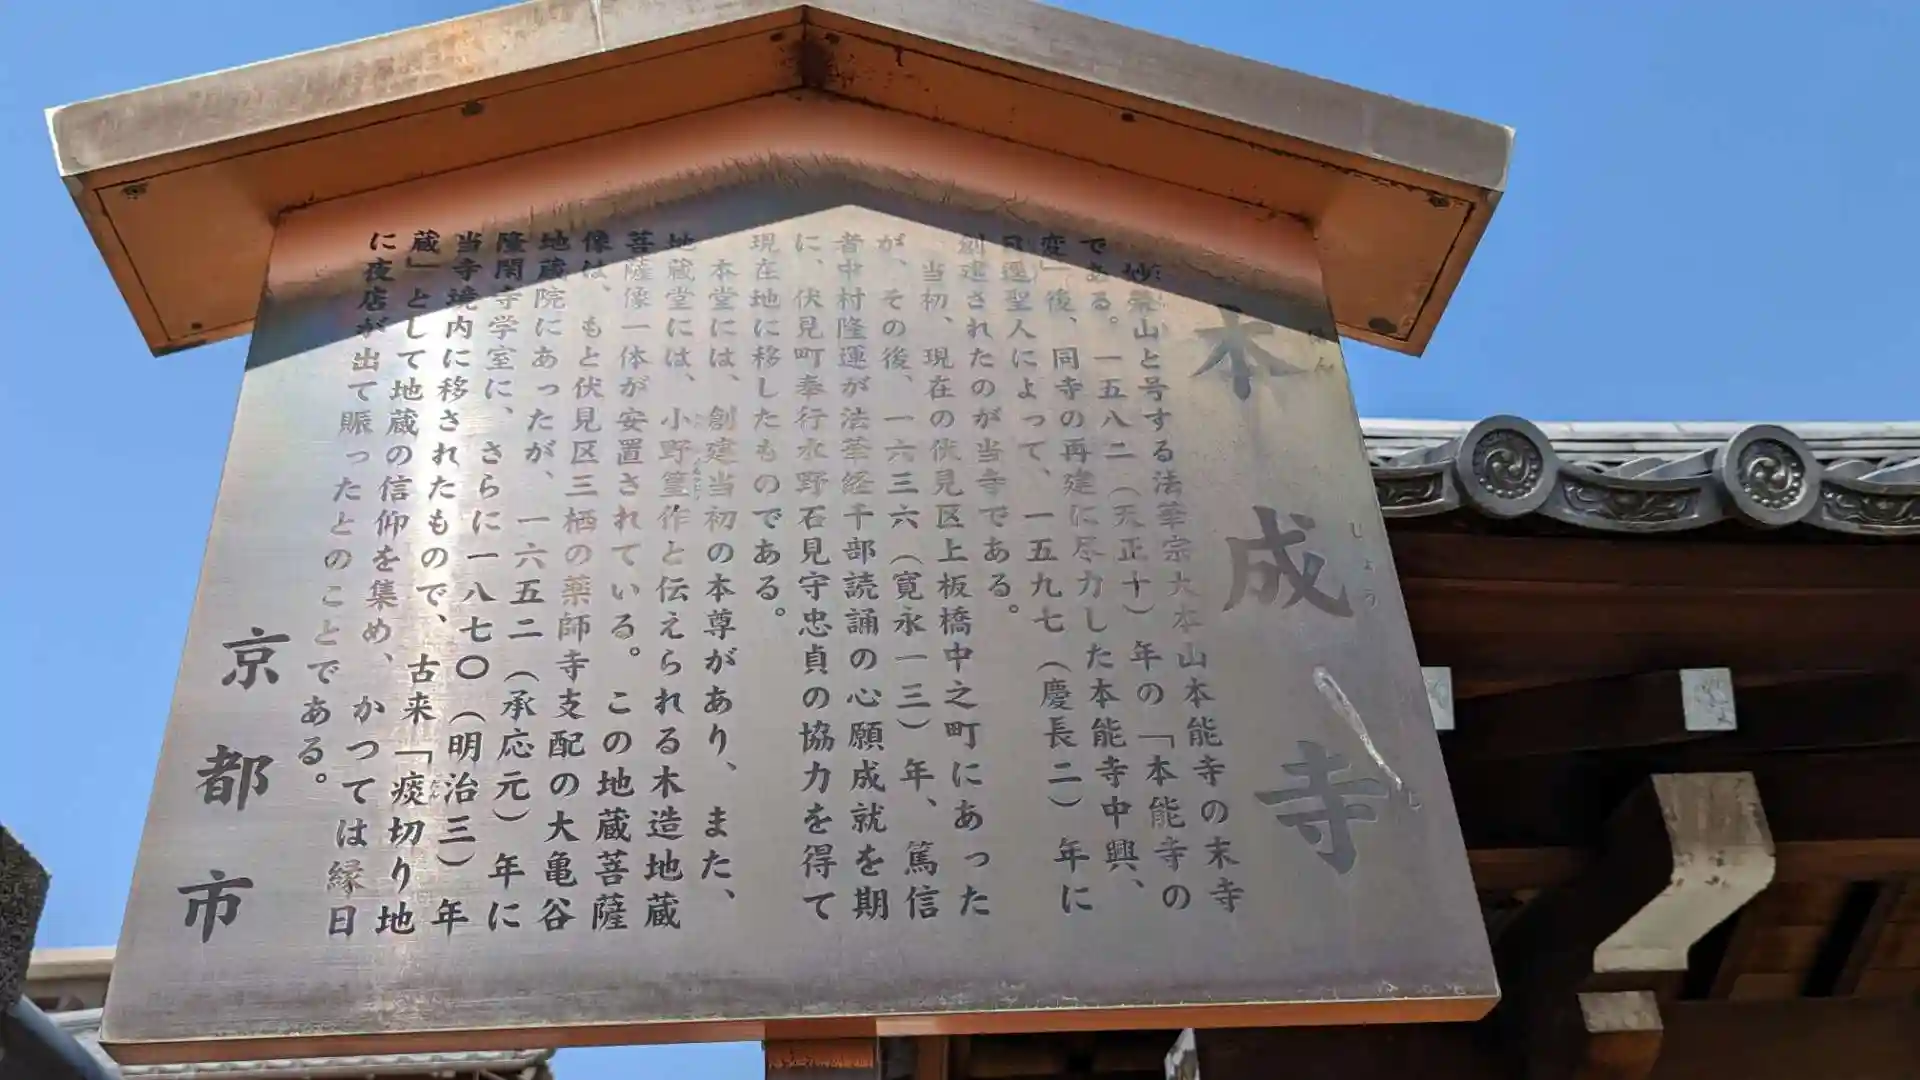 本成寺
ほん じょう じ
妙榮山と号する法華宗大本山本能寺の末寺
である。一五八二（天正十）年の「本能寺の
変」後、同寺の再建に尽力した本能寺中興、
日逕聖人によって、一五九七（慶長二）年に
創建されたのが当寺である。
当初、現在の伏見区上板橋中之町にあった
が、その後、一六三六（寛永一三）年、篤信
者中村隆運が法華経千部読誦の心願成就を期
に、伏見町奉行水野石見守忠貞の協力を得て
現在地に移したものである。
本堂には、創建当初の本尊があり、また、
地蔵堂には、小野篁作と伝えられる木造地蔵
菩薩像一体が安置されている。この地蔵菩薩
像は、もと伏見区三栖の薬師寺支配の大亀谷
地蔵院にあったが、一六五二（承応元）年に
隆閑寺学室に、さらに一八七〇（明治三）年
当寺境内に移されたもので、古来「痰切り地
蔵」として地蔵の信仰を集め、かつては縁日
に夜店が出て賑ったとのことである。
京都市